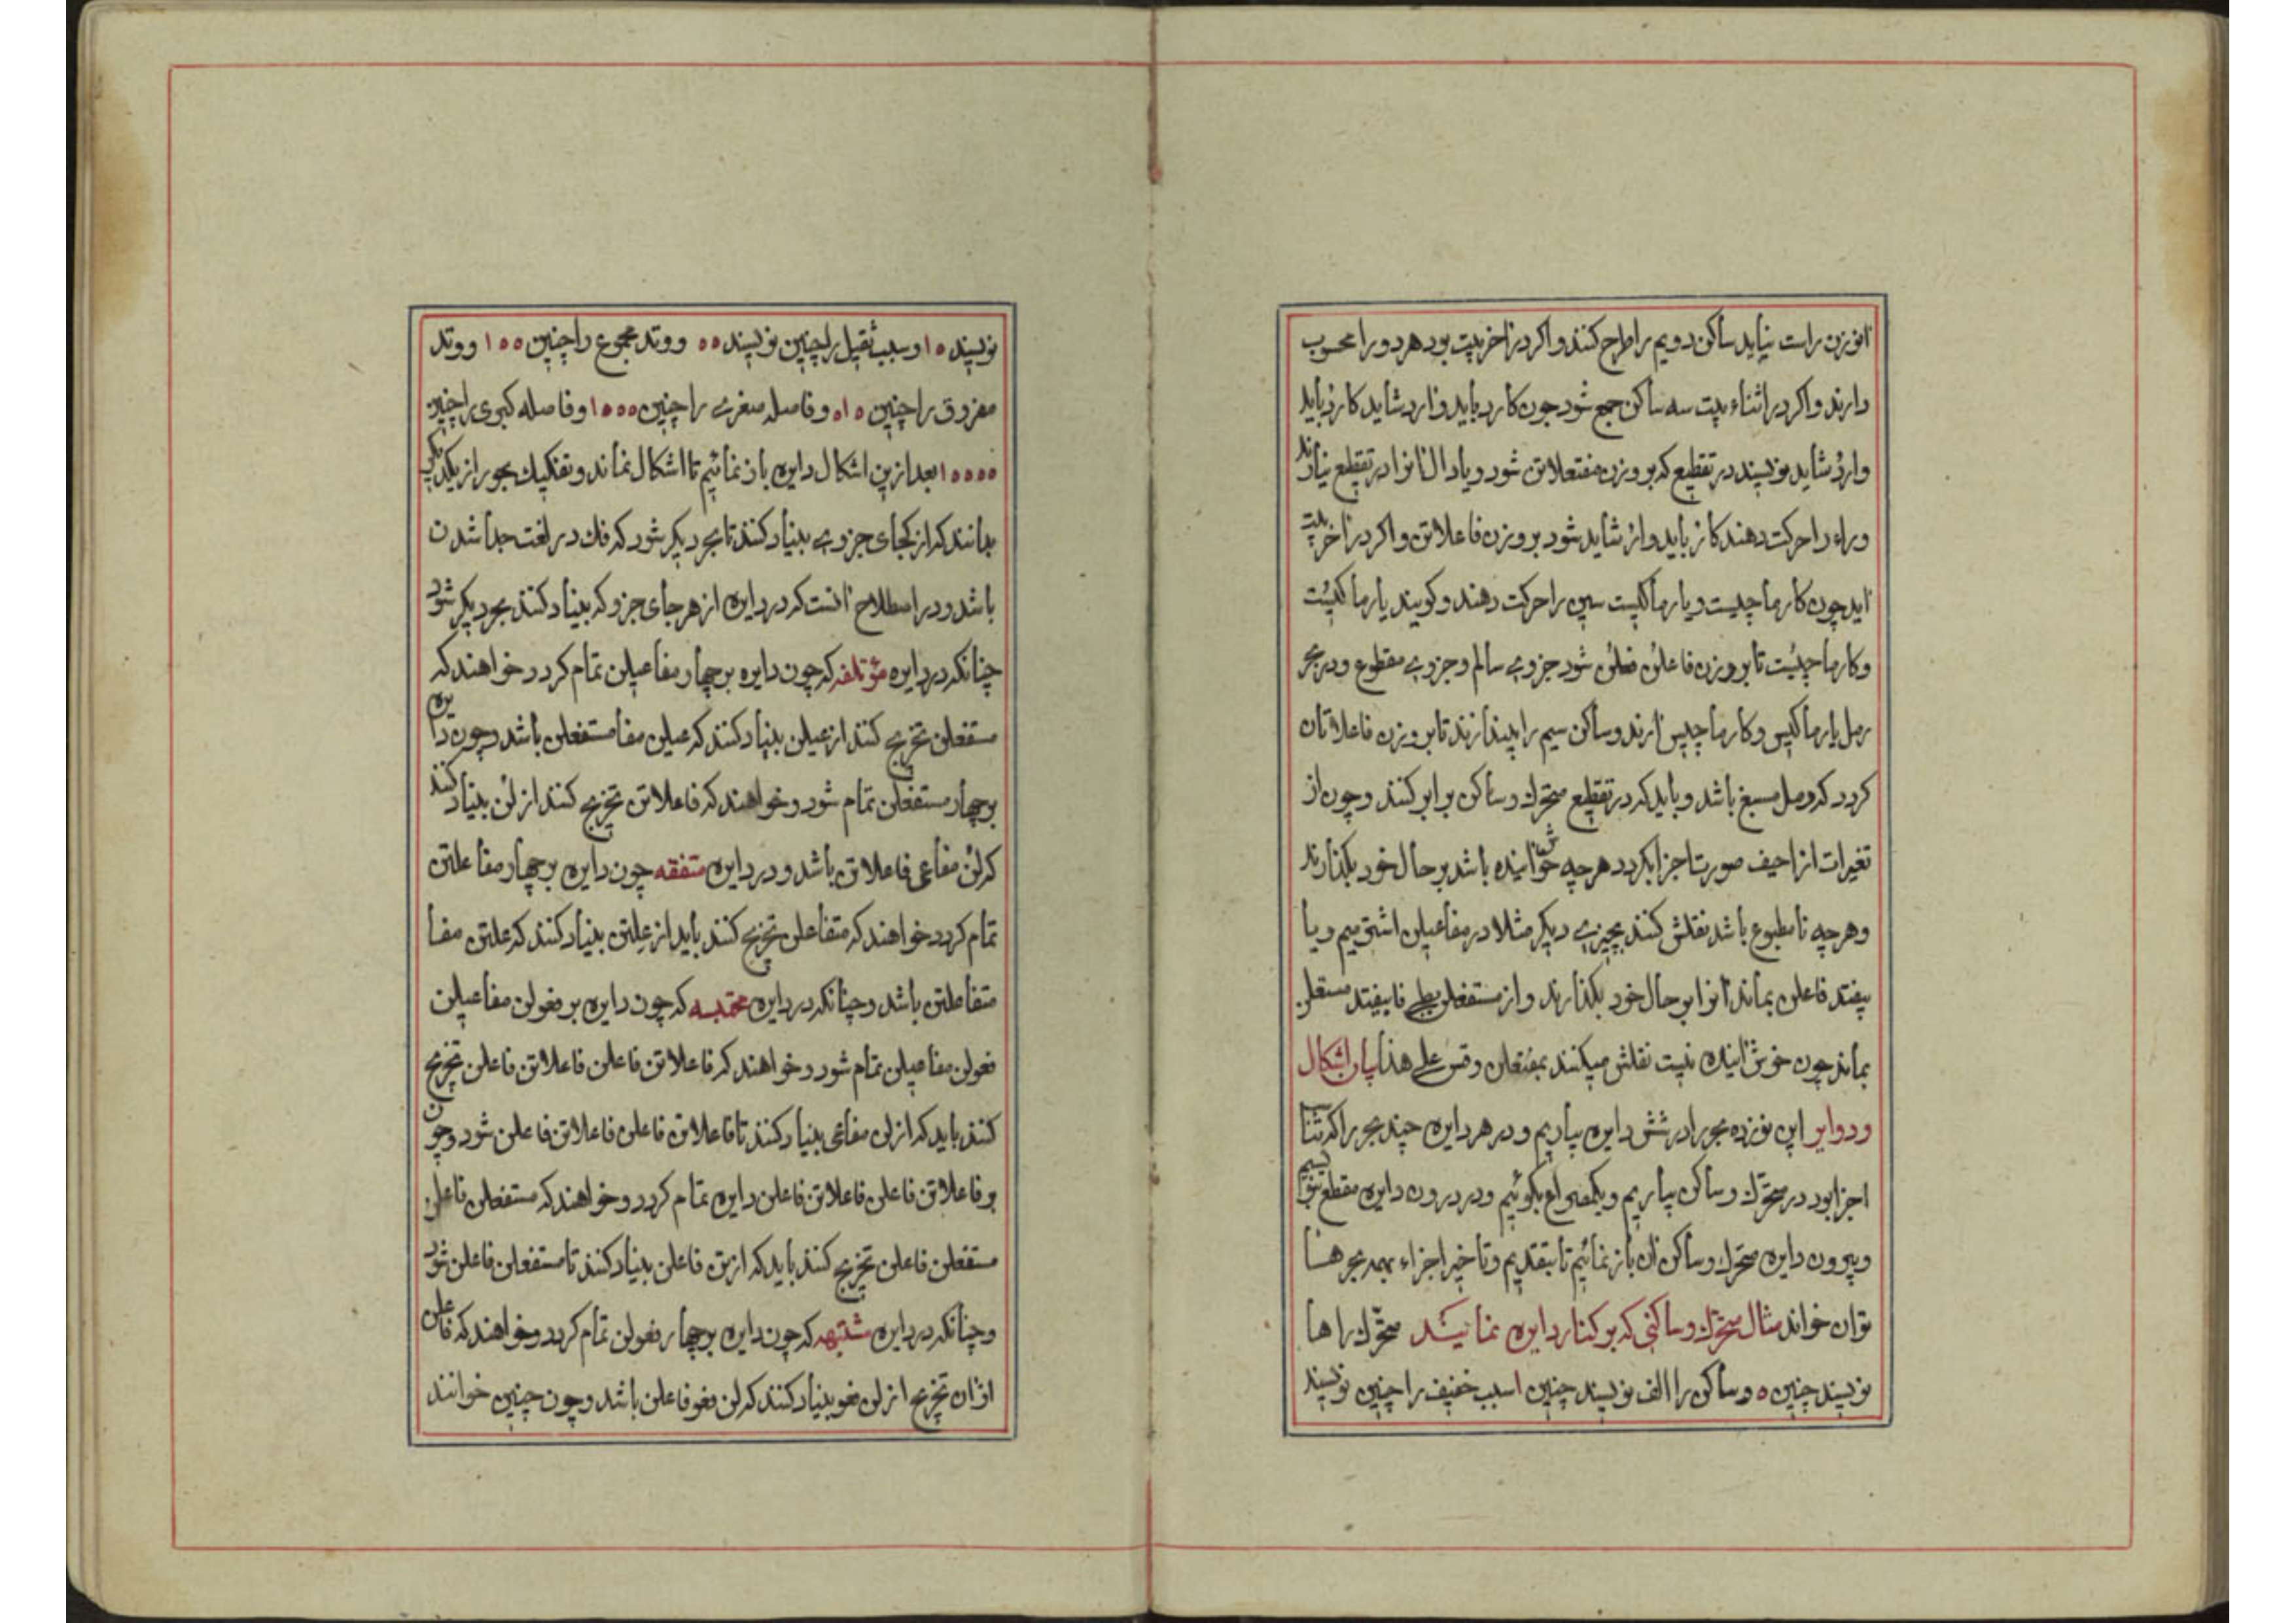 انوزن راست نیاید ساکن دویم را طرح کنند و اکر در اخر بیت بود هر دو را محسوب
دارند و اکر در اثناء بیت سه ساکن جمع شود چون کارد باید وارد شاید کارد باید
وارد شاید نویسند در تقطیع که بر وزن مفتعلاتن شود و یا دال انرا در تقطیع نیارند
وراء را حرکت دهند کار باید وار شاید شود بر وزن فاعلاتن و اکر در اخر بیت
اید چون کار ما چیست و یار ما کیست سین را حرکت دهند و کویند یار ما کیست
و کار ما چیست تا بر وزن فاعلن فعلن شود جزوی سالم و جزوی مقطوع و در بحر
رمل یار ما کیس و کار ما چیس ارند و ساکن سیم را بیندازند تا بر وزن فاعلاتان
کردد که رمل مسبغ باشد و باید که در تقطیع متحرك و ساکن برابر کنند و چون از
تغیرات ازاحیف صورت اجزا بکردد هرچه خوش اینده باشد بر حال خود بکذارند
و هرچه نامطبوع باشد نقلش کنند بچیزی دیکر مثلا در مفاعیلن اشتر میم و یا
بیفتد فاعلن بماند انرا بر حال خود بکذارند و از مستفعلن فا بیفتد مستعلن
بماند چون خوش اینده نیست نقلش میکنند بمفتعلن و قس علی هذا بیان اشکال
و دوایر این نوزده بحر را در شش دایره بیاریم و در هر دایره چند بحر را که
اجزا بود در متحرك و ساکن بیاریم و یکمصراع بکوئیم و در درون دایره مقطع بنویسیم
و بیرون دایره متحرك و ساکن ان باز نمائیم تا بتقدیم و تاخیر اجزاء همه بحرها
توان خواند مثال متحرك و ساکنی که بر کنار دایره نمایند متحرك را ها
نویسند چنین ه و ساکن را الف نویسند چنین ا سبب خفیف را چنین نویسند
نویسند ه ا و سبب ثقیل را چنین نویسند ه ه و وتد مجموع را چنین ه ه ا و وتد
مفروق را چنین ه ا ه و فاصله صغری را چنین ه ه ه ا و فاصله کبری را چنین
ه ه ه ه ا بعد ازین اشکال دایره باز نمائیم تا اشکال نماند و تفکیك بحور از یکدیکر
بدانند که از کجای جزوی بنیاد کنند تا بحر دیکر شود که فك در لغت جدا شدن
باشد و در اصطلاح انست که در دایره از هر جای جزو که بنیاد کنند بحر دیکر شود
چنانکه در دایره مؤتلفه که چون دایره بر چهار مفاعیلن تمام کردد خواهند که
مستفعلن تخریج کنند از عیلن بنیاد کنند که عیلن مفا مستفعلن باشد و چون دایره
بر چهار مستفعلن تمام شود و خواهند که فاعلاتن تخریج کنند از لن بنیاد کنند
که لن مفاعی فاعلاتن باشد و در دایره متفقه چون دایره بر چهار مفاعلتن
تمام کردد خواهند که متفاعلن تخریج کنند باید از علتن بنیاد کنند که علتن مفا
متفاعلتن باشد و چنانکه در دایره مختلبه که چون دایره بر فعولن مفاعیلن
فعولن مفاعیلن تمام شود و خواهند که فاعلاتن فاعلن فاعلاتن فاعلن تخریج
کنند باید که از لن مفاعی بنیاد کنند تا فاعلاتن فاعلن فاعلاتن فاعلن شود و چون
بر فاعلاتن فاعلن فاعلاتن فاعلن دایره تمام کردد و خواهند که مستفعلن فاعلن
مستفعلن فاعلن تخریج کنند باید که از تن فاعلن بنیاد کنند تا مستفعلن فاعلن شود
و چنانکه در دایره مشتبهه که چون دایره بر چهار فعولن تمام کردد و خواهند که فاعلن
ازان تخریج از لن فعو بنیاد کنند که لن فعو فاعلن باشد و چون چنین خوانند